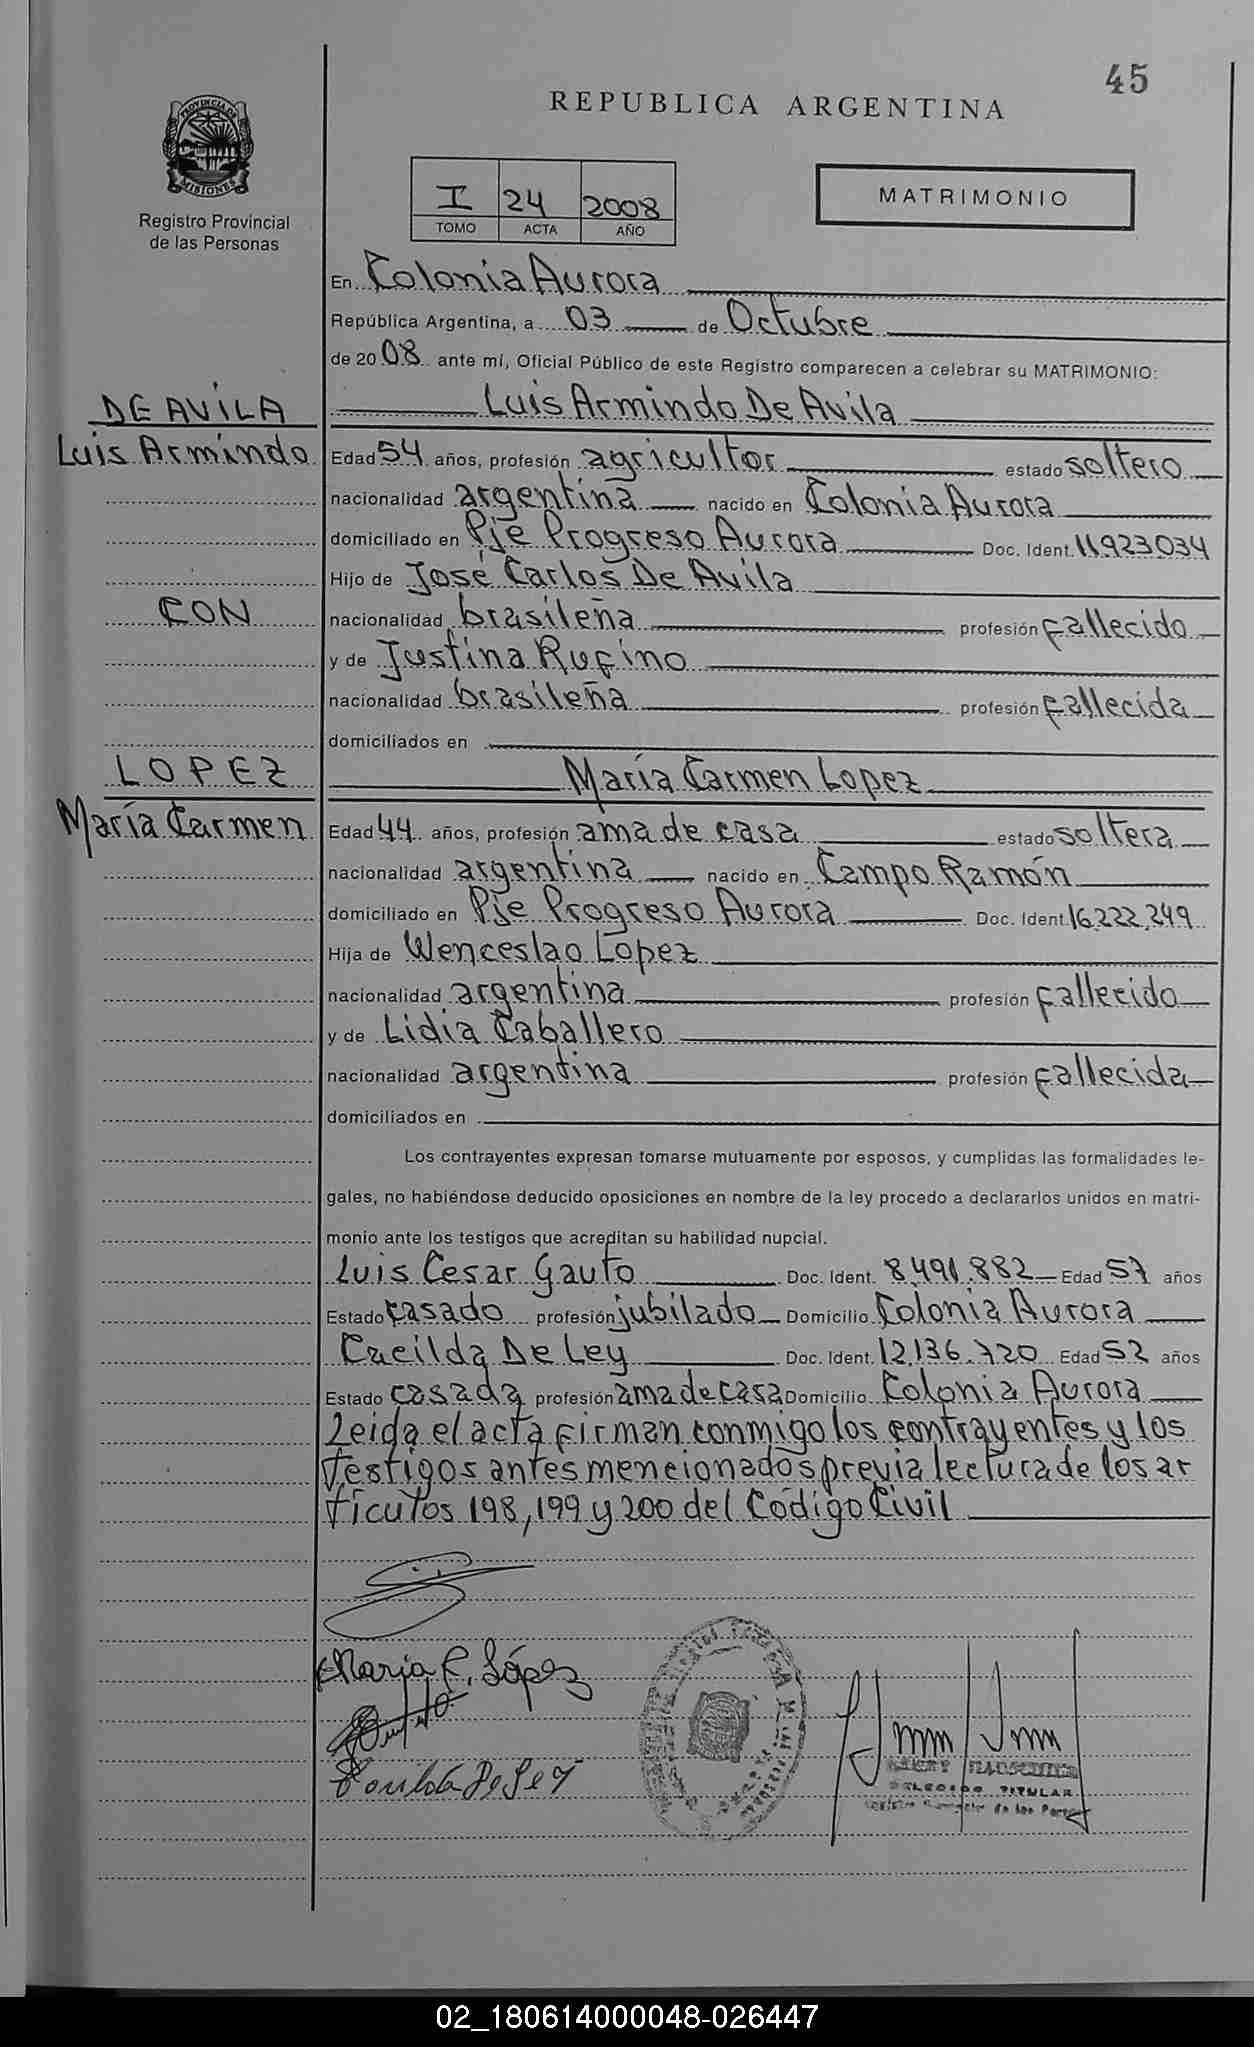 45
REPUBLICA ARGENTINA
PROVINCIA DE
MISIONES
Registro Provincial
de las Personas
I 24 2008
TOMO ACTA AÑO
MATRIMONIO
En Colonia Aurora
República Argentina, a 03 de Octubre
de 2008 ante mí, Oficial Público de este Registro comparecen a celebrar su MATRIMONIO:
DE AVILA Luis Armindo De Avila
Luis Armindo Edad 54 años, profesión agricultor estado soltero
nacionalidad argentina nacido en Colonia Aurora
domiciliado en Pje Progreso Aurora Doc. Ident. 11923034
Hijo de José Carlos De Avila
CON nacionalidad brasileña profesión fallecido
y de Justina Rufino
nacionalidad brasileña profesión fallecida
domiciliados en
LOPEZ María Carmen Lopez
María Carmen Edad 44 años, profesión ama de casa estado soltera
nacionalidad argentina nacido en Campo Ramón
domiciliado en Pje Progreso Aurora Doc. Ident. 16.222.249
Hija de Wenceslao Lopez
nacionalidad argentina profesión fallecido
y de Lidia Caballero
nacionalidad argentina profesión fallecida
domiciliados en
Los contrayentes expresan tomarse mutuamente por esposos, y cumplidas las formalidades le-
gales, no habiéndose deducido oposiciones en nombre de la ley procedo a declararlos unidos en matri-
monio ante los testigos que acreditan su habilidad nupcial.
Luis Cesar Gauto Doc. Ident. 8.491.882 Edad 57 años
Estado casado profesión jubilado Domicilio Colonia Aurora
Cacilda De Ley Doc. Ident. 12.136.720 Edad 52 años
Estado casada profesión ama de casa Domicilio Colonia Aurora
Leida el acta firman conmigo los contrayentes y los
testigos antes mencionados previa lectura de los ar
tículos 198, 199 y 200 del Código Civil
Maria C. López
De Ley
DELEGADO TITULAR
de las
02_180614000048-026447